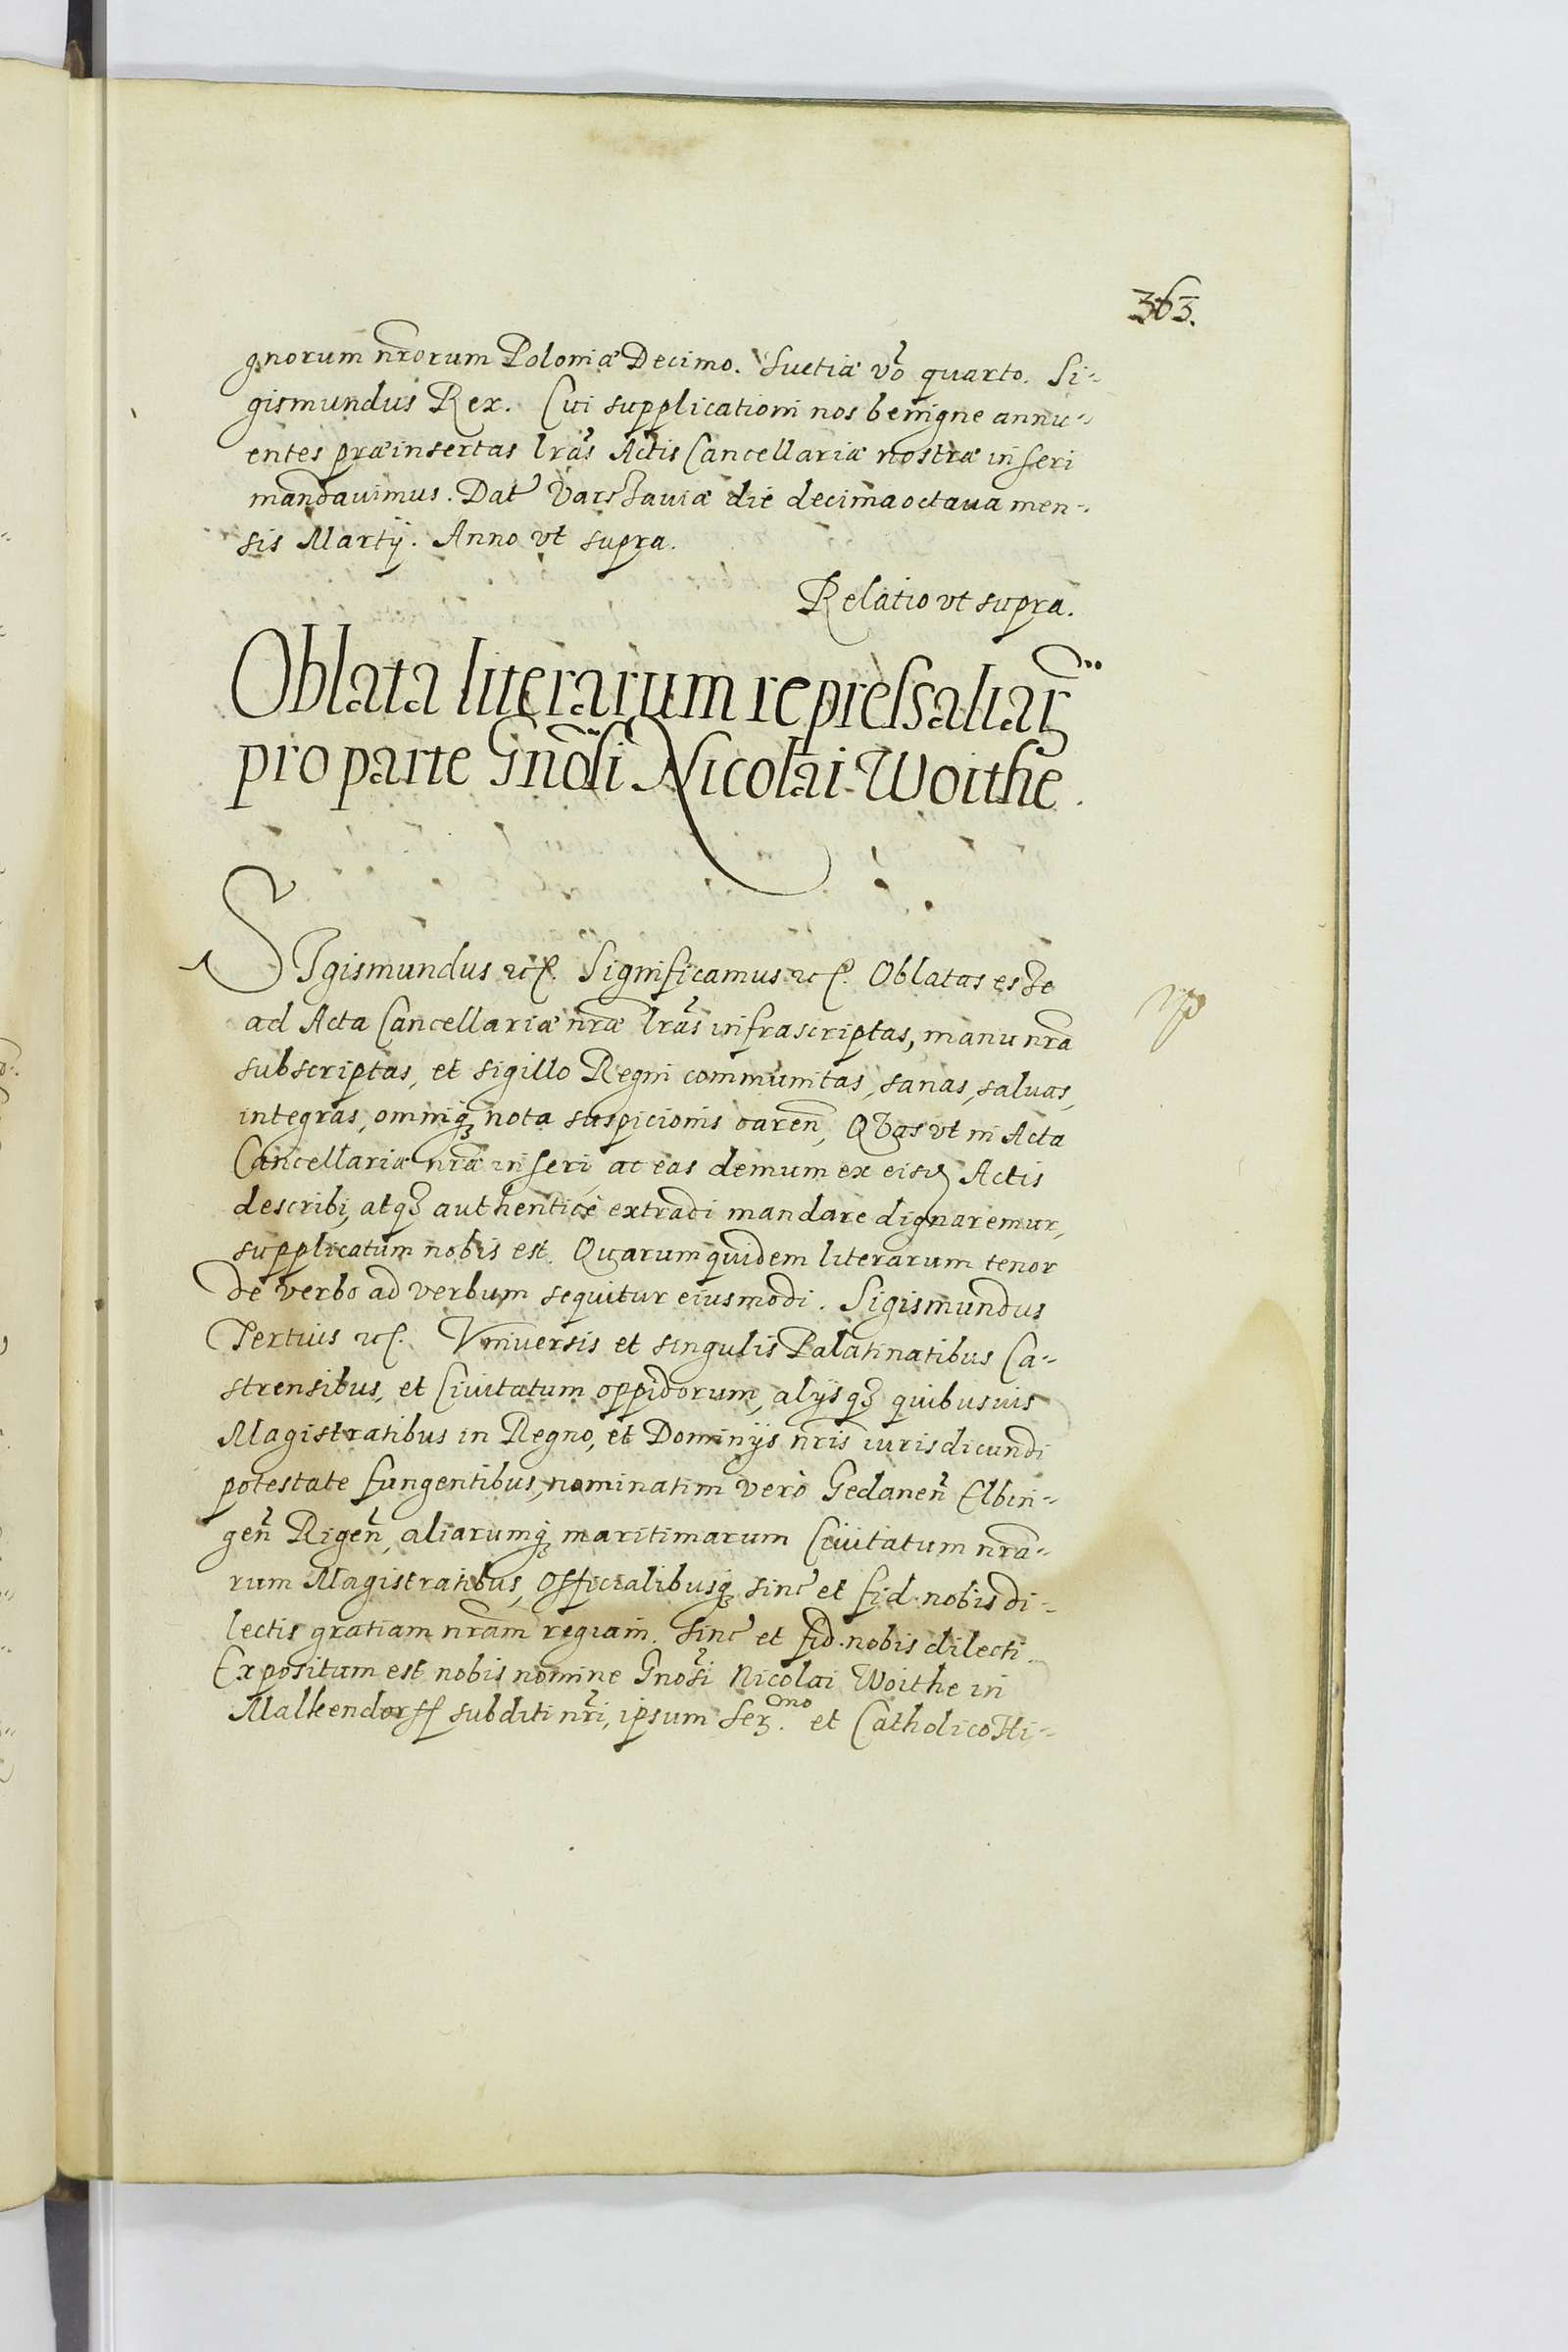 363.
gnorum nrorum Poloniæ Decimo. Suetiæ vo quarto. Si-
gismundus Rex. Cui supplicationi nos benigne annu-
entes præinsertas lras Actis Cancellariæ nostræ inseri
mandauimus. Dat Varssauiæ die decima octaua men-
sis Martij. Anno vt supra.
Relatio vt supra.
Oblata literarum repressaliar
pro parte Gnosi Nicolai Woithe.
SIgismundus etc. Significamus etc. Oblatas esse
ad Acta Cancellariæ nræ lras infrascriptas, manu nra
subscriptas, et sigillo Regni communitas, sanas, saluas,
integras, omniq3 nota suspicionis caren, Quas vt in Acta
Cancellariæ nræ inseri, ac eas demum ex eisd Actis
describi, atq3 authentice extradi mandare dignaremur,
supplicatum nobis est. Quarum quidem literarum tenor
de verbo ad verbum sequitur eiusmodi. Sigismundus
Tertius etc. Vniuersis et singulis Palatinatibus Ca-
strensibus, et Ciuitatum oppidorum, alijsq3 quibusuis
Magistratibus in Regno, et Dominijs nris iurisdicundi
potestate fungentibus, nominatim vero Gedanen Elbin-
gen Rigen, aliarumq3 maritimarum Ciuitatum nra-
rum Magistratibus, Officialibusq3 sinc et fid. nobis di-
lectis gratiam nram regiam. Sinc et fid. nobis dilecti.
Expositum est nobis nomine Gnosi Nicolai Woithe in
Malkendorff subditi nri, ipsum Ser.mo et Catholico Hi-